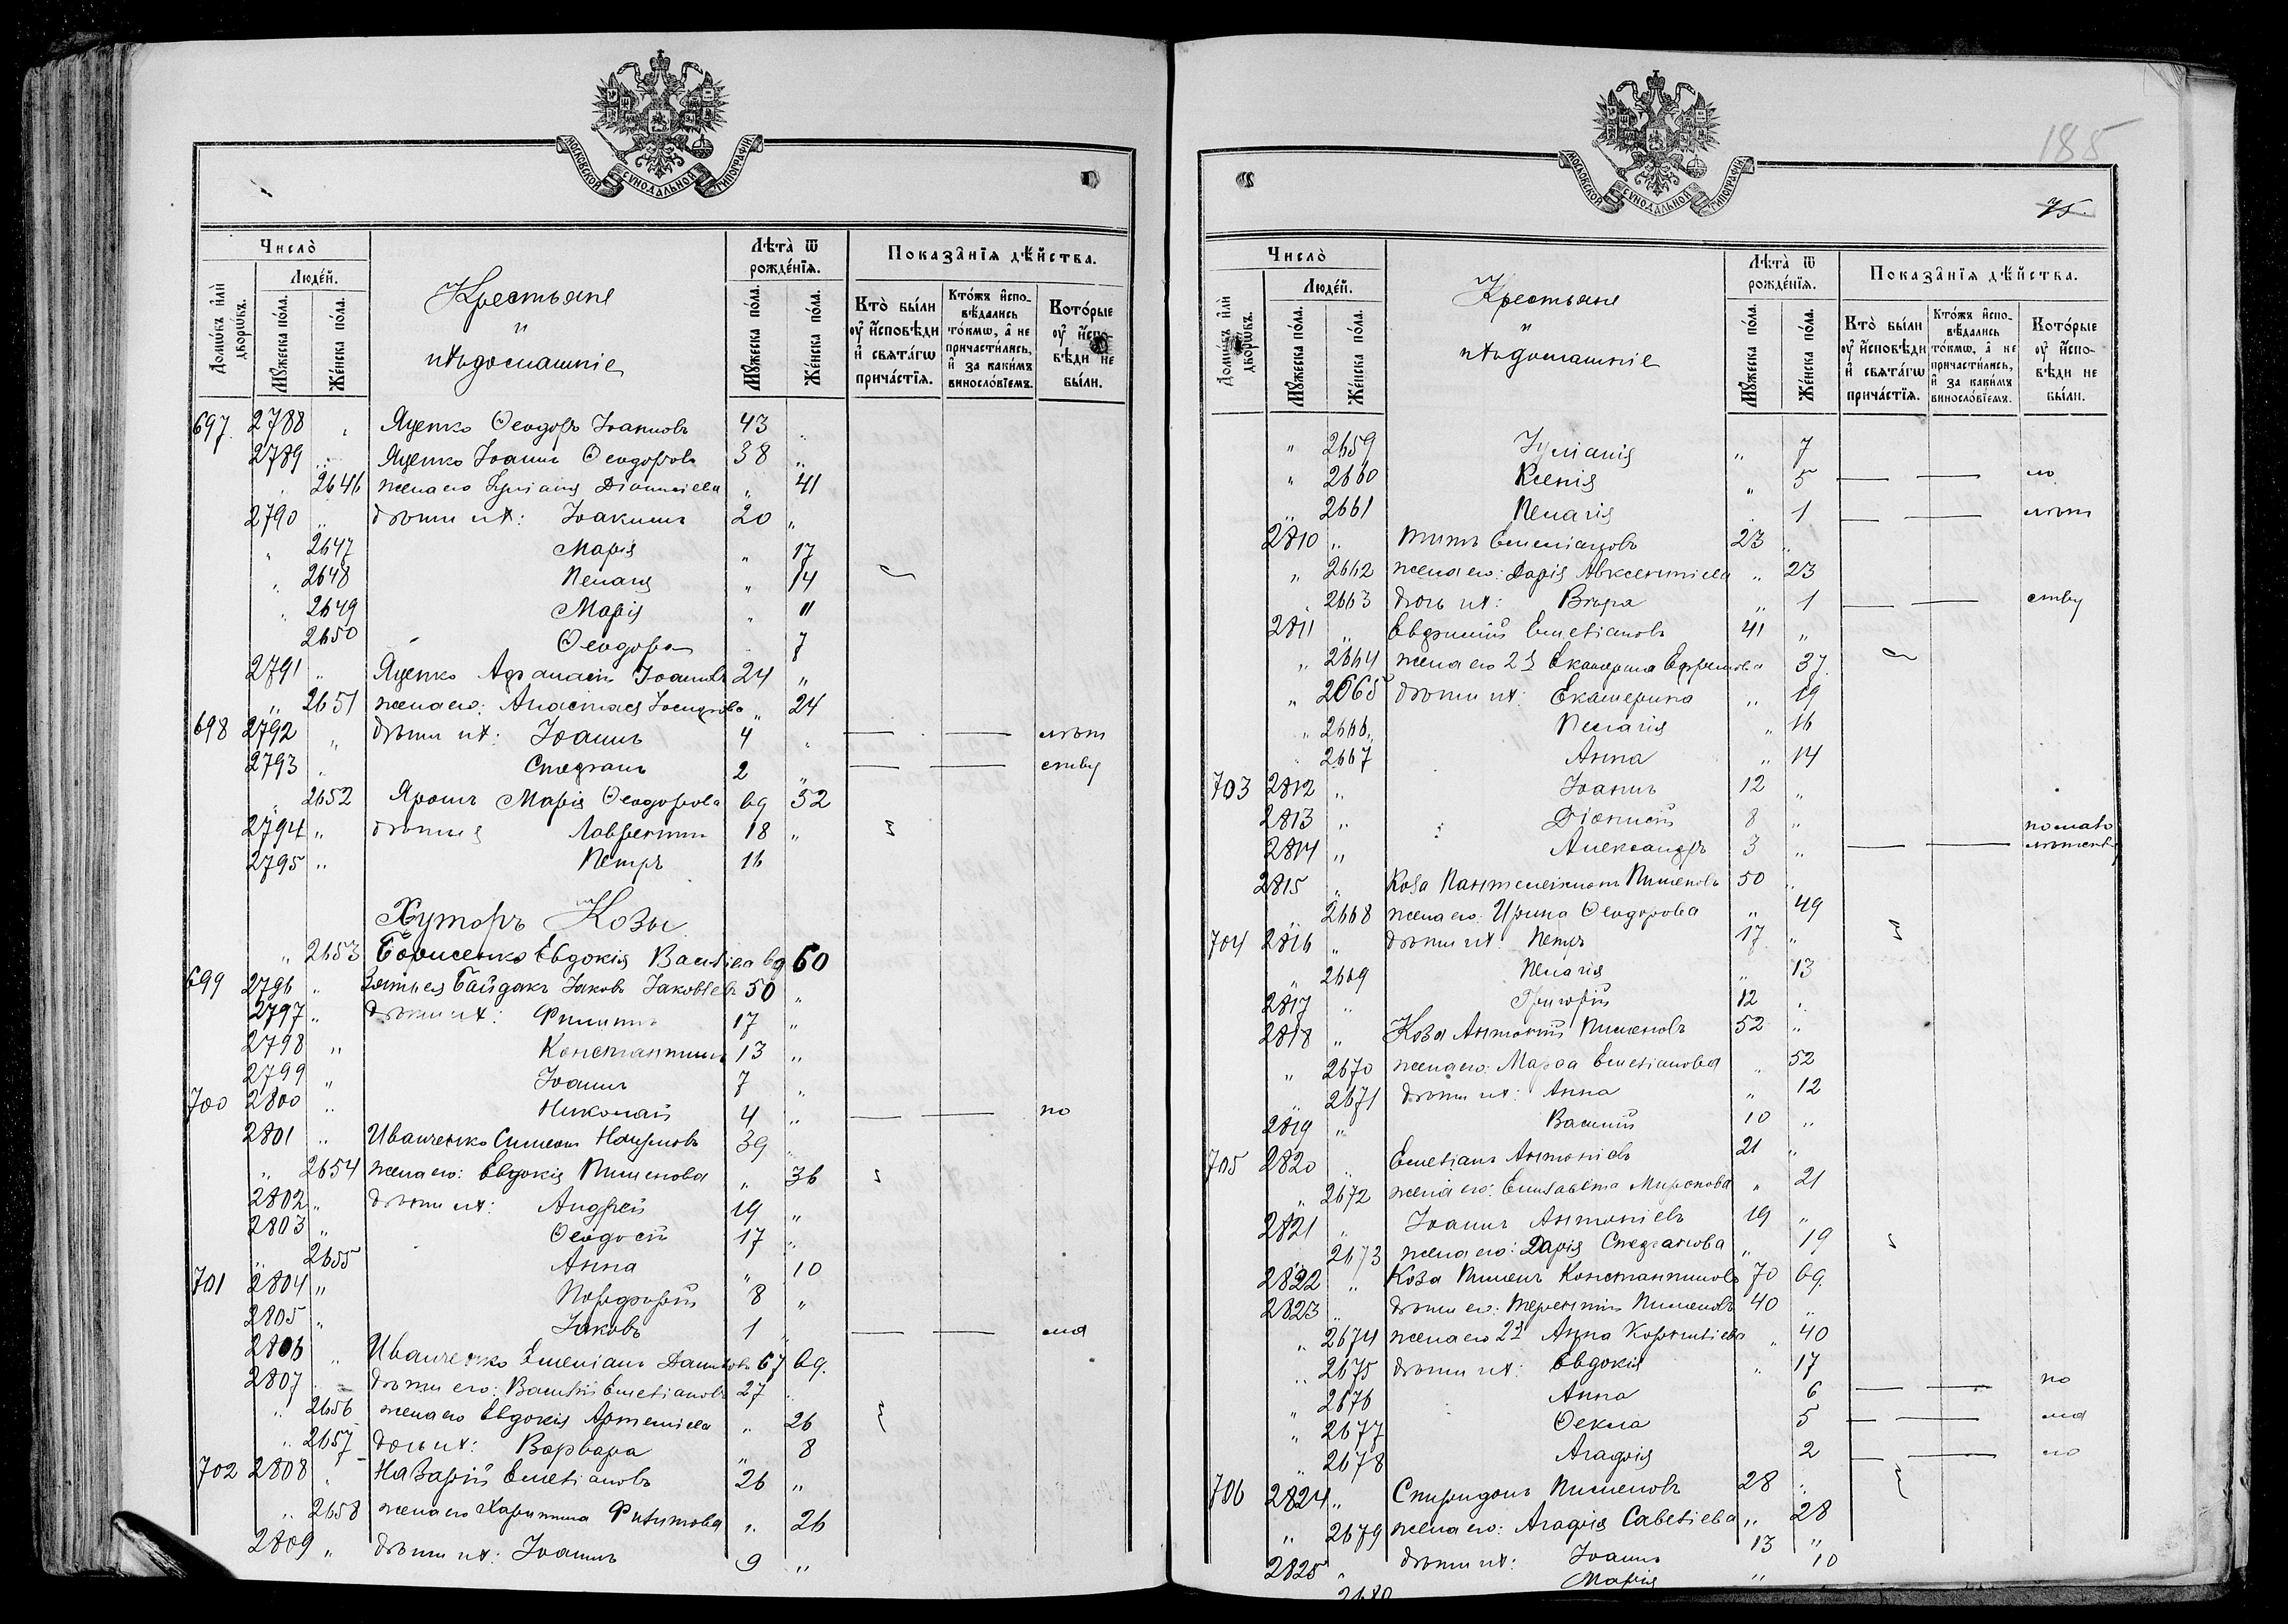 МОСКОВСКОЙ СѴНОДАЛЬНОЙ ТИПОГРАФІИ
Число̀
Людей.
Домѡ́въ и҆лѝ дворѡ́въ.
Мꙋ́жеска по́ла.
Же́нска по́ла.
Крестьяне
и
ихъ домашніе
Лѣта̀ ѿ рожде́нїѧ.
Мꙋ́жеска по́ла.
Же́нска по́ла.
Показа̂нїѧ дѣ́йства.
Кто̀ бы́ли оу҆ и҆́сповѣди и҆ свѧта́гѡ прича́стїѧ.
Кто́жъ и҆спо-вѣ́дались то́кмѡ, а҆ не причасти́лись, и҆ за каки́мъ виносло́вїемъ.
Кото́рые оу҆ и҆́спо-вѣди не бы́ли.
697. 2788 " Яценко Ѳеодоръ Іоанновъ 43 "
2789 " Яценко Іоаннъ Ѳеодоровъ 38 "
" 2646 жена его Іуліанія Діонисіева " 41
2790 " дѣти ихъ: Іоакимъ 20 "
" 2647 Марія " 17
" 2648 Пелагія " 14
" 2649 Марія " 11
2650 Ѳеодора " 7
2791 " Яценко Аѳанасій Іоанновъ 24 "
" 2651 жена его: Анастасія Іосифова " 24
698 2792 " дѣти ихъ: Іоаннъ 4 " — — лѣт
2793 " Стефанъ 2 " — — ству
" 2652 Ярошъ Марія Ѳеодорова вд 52
2794 " дѣти ея Лаврентій 18 "
2795 " Петръ 16
Хуторъ Козы
" 2653 Борисенко Евдокія Василіева вд 60
699 2796 " Зять ея Байдакъ Іаковъ Іаковлевъ 50 "
2797 " дѣти ихъ: Филиппъ 17 "
2798 " Константинъ 13 "
2799 " Іоаннъ 7 "
700 2800 " Николай 4 " — — по
2801 " Иванченко Симеонъ Наумовъ 39 "
" 2654 жена его: Евдокія Пименова " 36
2802 " дѣти ихъ: Андрей 19 "
2803 " Ѳеодосій 17 "
" 2655 Анна " 10
701 2804 " Порфирій 8 "
2805 " Іаковъ 1 " — — мал
2806 " Иванченко Емеліанъ Даниловъ 67 вд.
2807 " дѣти его: Василій Емеліановъ 27 "
" 2656 жена его Евдокія Артеміева " 26
" 2657 дочь ихъ: Варвара " 8
702 2808 " Назарій Емеліановъ 26 "
" 2658 жена его Харитина Филипова " 26
2809 " дѣти ихъ: Іоаннъ 9 "
185
75.
МОСКОВСКОЙ СѴНОДАЛЬНОЙ ТИПОГРАФІИ
Число̀
Людей.
Домѡ́въ и҆лѝ дворѡ́въ.
Мꙋ́жеска по́ла.
Же́нска по́ла.
Крестьяне
и
ихъ домашніе
Лѣта̀ ѿ рожде́нїѧ.
Мꙋ́жеска по́ла.
Же́нска по́ла.
Показа̂нїѧ дѣ́йства.
Кто̀ бы́ли оу҆ и҆́сповѣди и҆ свѧта́гѡ прича́стїѧ.
Кто́жъ и҆спо-вѣ́дались то́кмѡ, а҆ не причасти́лись, и҆ за каки́мъ виносло́вїемъ.
Кото́рые оу҆ и҆спо-вѣди не бы́ли.
" 2659 Іуліанія " 7
" 2660 Ксенія " 5 — — ло
" 2661 Пелагія " 1 — — лѣт
2810 " Титъ Емеліановъ 23 "
" 2662 жена его: Дарія Авксентіева " 23
" 2663 дочь ихъ: Вѣра " 1 — — ству
2811 " Евфимій Емеліановъ 41 "
" 2664 жена его 2я Екатерина Ефремова 37
" 2665 дѣти ихъ: Екатерина " 19
" 2666 Пелагія " 16
" 2667 Анна " 14
703 2812 " Іоаннъ 12 "
2813 " Діонисій 8 "
2814 " Александръ 3 " — — по мало лѣтству
2815 " Коза Пантелеимонъ Пименовъ 50 "
" 2668 жена его: Ирина Ѳеодорова " 49
704 2816 " дѣти ихъ: Петръ 17 "
" 2669 Пелагія " 13
2817 " Григорій 12 "
2818 " Коза Антоній Пименовъ 52 "
" 2670 жена его: Марѳа Емеліанова " 52
" 2671 дѣти ихъ: Анна " 12
2819 " Василій 10 "
705 2820 " Емеліанъ Антоніевъ 21 "
" 2672 жена его: Елисавета Миронова " 21
2821 " Іоаннъ Антоніевъ 19 "
" 2673 жена его: Дарія Стефанова " 19
2822 " Коза Пименъ Константиновъ 70 вд.
2823 " дѣти его: Терентій Пименовъ 40 "
" 2674 жена его 2я Анна Корниліева " 40
" 2675 дѣти ихъ: Евдокія " 17
" 2676 Анна 6 — — по
" 2677 Ѳекла 5 — — мал
" 2678 Агафія 2 — — ло
706 2824 " Спиридонъ Пименовъ 28 "
" 2679 жена его: Агафія Савеліева " 28
2825 " дѣти ихъ: Іоаннъ 13 "
2680 Марія " 10